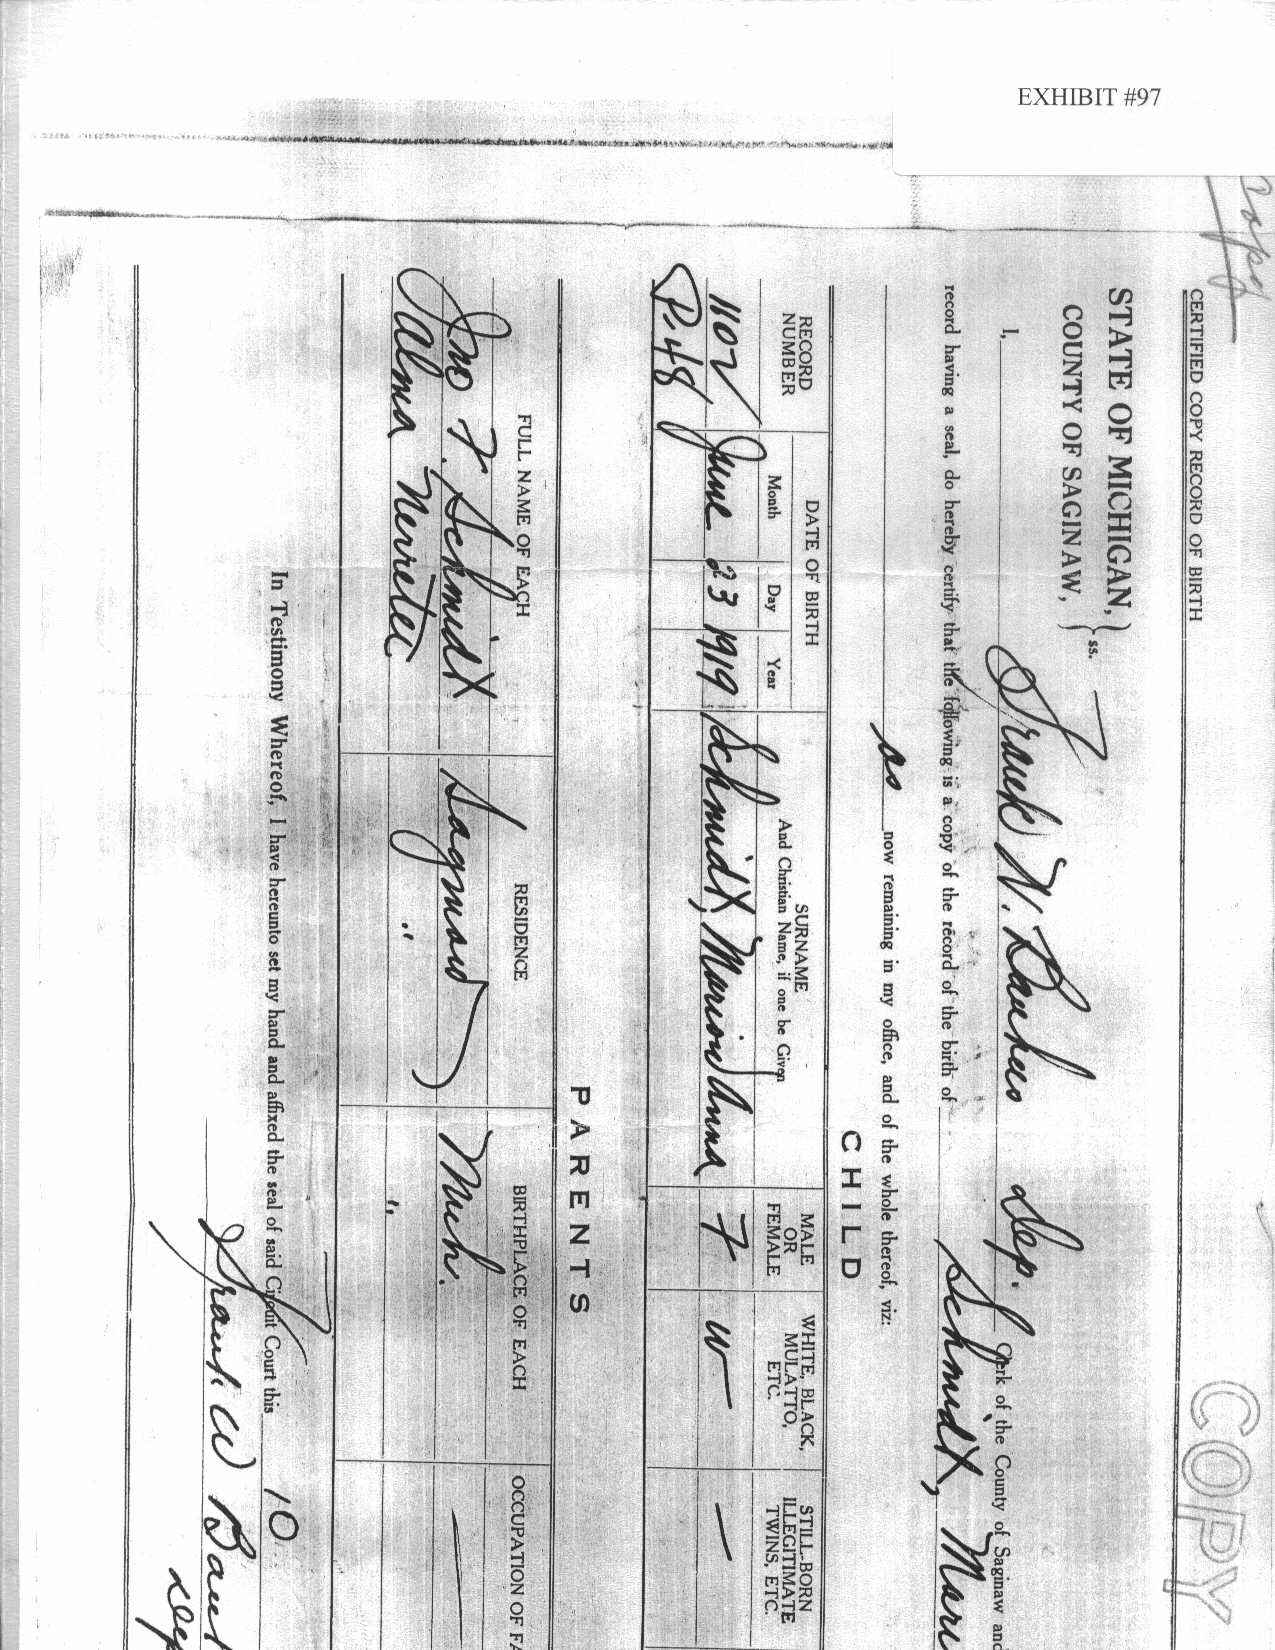 EXHIBIT #97
Copy
COPY
CERTIFIED COPY RECORD OF BIRTH
STATE OF MICHIGAN,
COUNTY OF SAGINAW, } ss.
I, Frank W. Dep. Clerk of the County of Saginaw and
record having a seal, do hereby certify that the following is a copy of the record of the birth of Schmidt, Mari
as now remaining in my office, and of the whole thereof, viz:
CHILD
RECORD NUMBER
DATE OF BIRTH
Month Day Year
SURNAME
And Christian Name, if one be Given
MALE OR FEMALE
WHITE, BLACK, MULATTO, ETC.
STILL-BORN ILLEGITIMATE TWINS, ETC.
1102 June 23 1919 Schmidt, Marion Anna F W —
P-48
PARENTS
FULL NAME OF EACH RESIDENCE BIRTHPLACE OF EACH OCCUPATION OF FA
Jno F. Schmidt Saginaw Mich. —
Salma " "
In Testimony Whereof, I have hereunto set my hand and affixed the seal of said Circuit Court this 10
Frank W
Dep